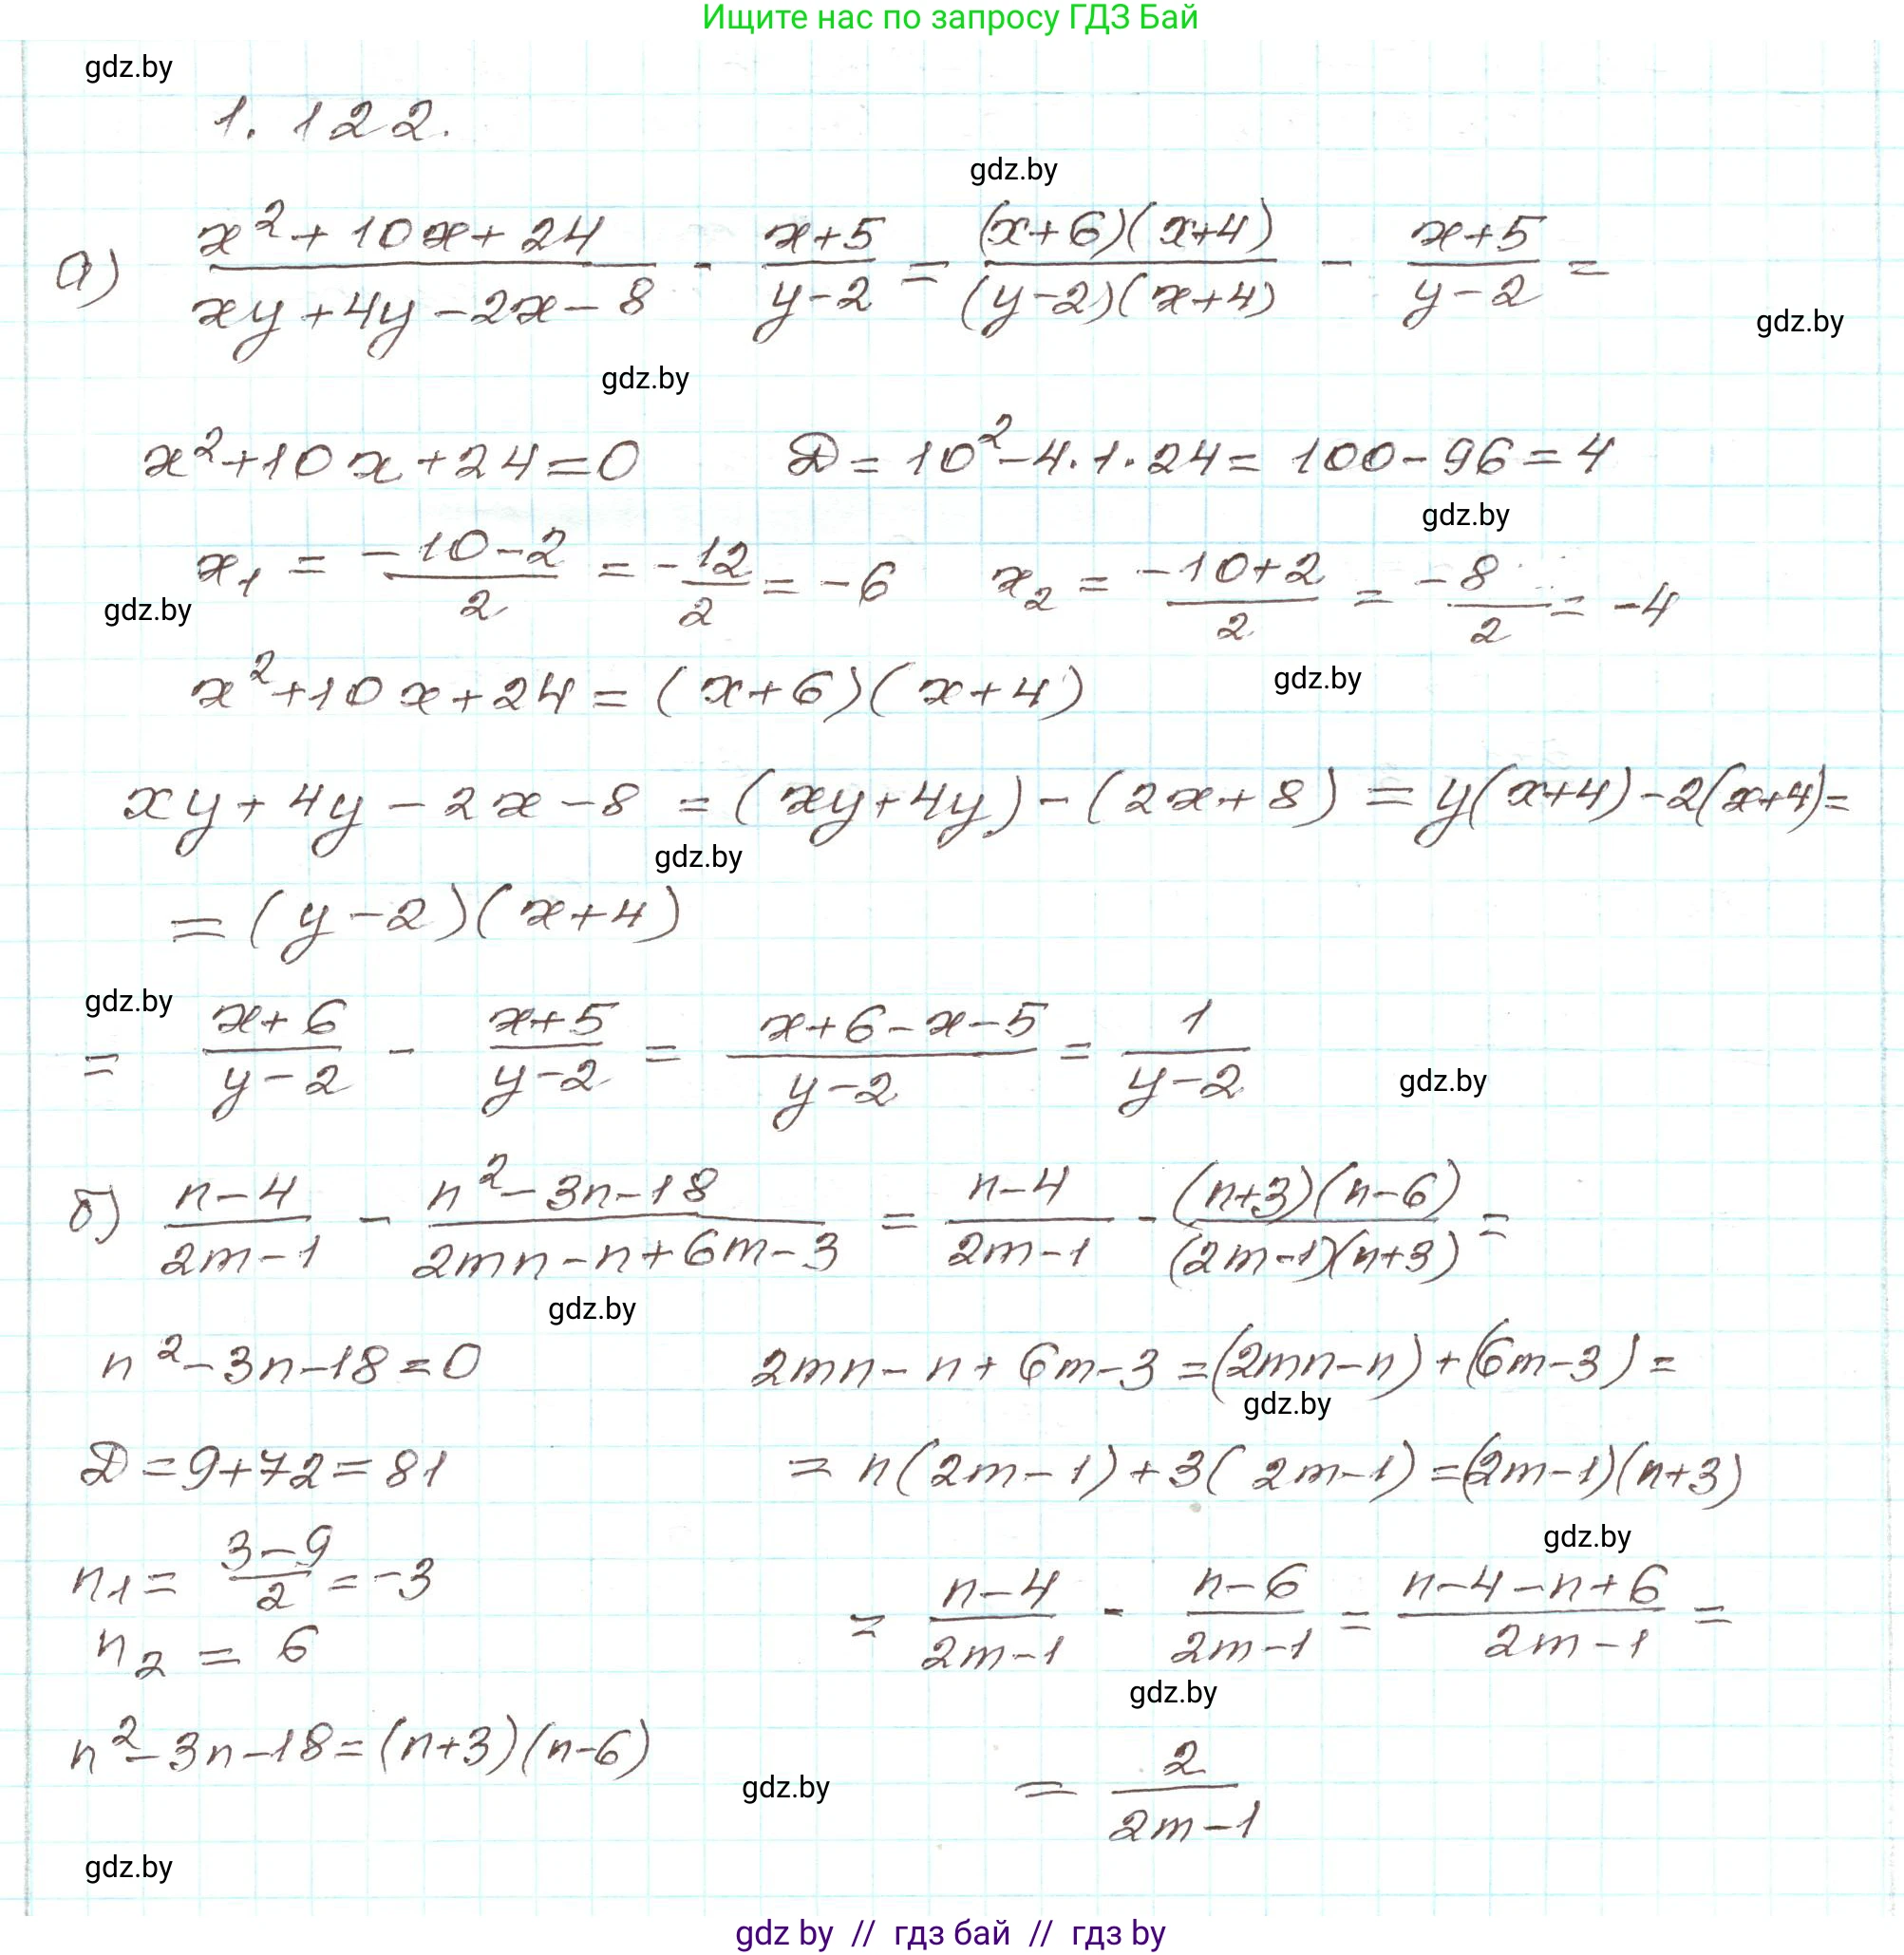 Ищите нас по запросу ГДЗ Бай
gdz.by
1.122.
gdz.by
а) (x²+10x+24)/(xy+4y-2x-8) - (x+5)/(y-2) = ((x+6)(x+4))/((y-2)(x+4)) - (x+5)/(y-2) =
gdz.by
gdz.by
x²+10x+24=0 D=10²-4·1·24=100-96=4
gdz.by
x₁ = (-10-2)/2 = -12/2 = -6 x₂ = (-10+2)/2 = -8/2 = -4
gdz.by
x²+10x+24=(x+6)(x+4)
gdz.by
xy+4y-2x-8 = (xy+4y)-(2x+8) = y(x+4)-2(x+4)=
gdz.by
=(y-2)(x+4)
gdz.by
= (x+6)/(y-2) - (x+5)/(y-2) = (x+6-x-5)/(y-2) = 1/(y-2)
gdz.by
б) (n-4)/(2m-1) - (n²-3n-18)/(2mn-n+6m-3) = (n-4)/(2m-1) - ((n+3)(n-6))/((2m-1)(n+3)) =
gdz.by
n²-3n-18=0 2mn-n+6m-3=(2mn-n)+(6m-3)=
gdz.by
D=9+72=81 =n(2m-1)+3(2m-1)=(2m-1)(n+3)
gdz.by
n₁= (3-9)/2 =-3 = (n-4)/(2m-1) - (n-6)/(2m-1) = (n-4-n+6)/(2m-1) =
n₂ = 6
gdz.by
n²-3n-18=(n+3)(n-6) = 2/(2m-1)
gdz.by
gdz.by
gdz by // гдз бай // гдз by